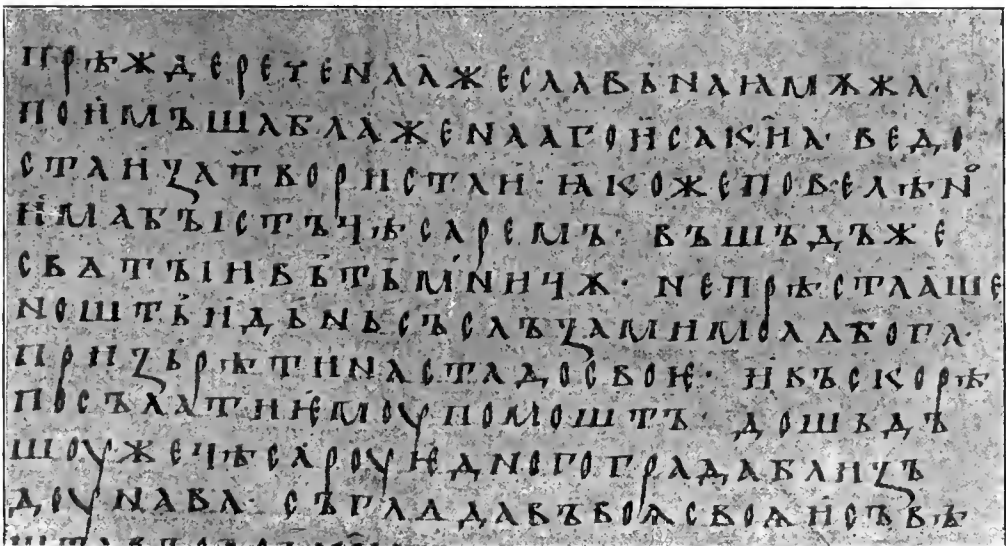 прѣждереченаажеславьнаꙗмѫжа·
поимъшаблаженаагоисакиа· ведо
стаизатвористаи· ꙗкожеповелѣно
имабъıстъцѣсаремъ· въшъдъже
свѧтъıивътьмьницѫ· непрѣстааше
ноштьидьньсъслъзамимолѧбога·
призьрѣтинастадосвоѥ· ивъскорѣ
посълатиѥмоупомошть· дошьдъ
шоужецѣсароуѥдногоградаблизъ
доунава· съглѧдавъвоѧсвоѧисъвѣ